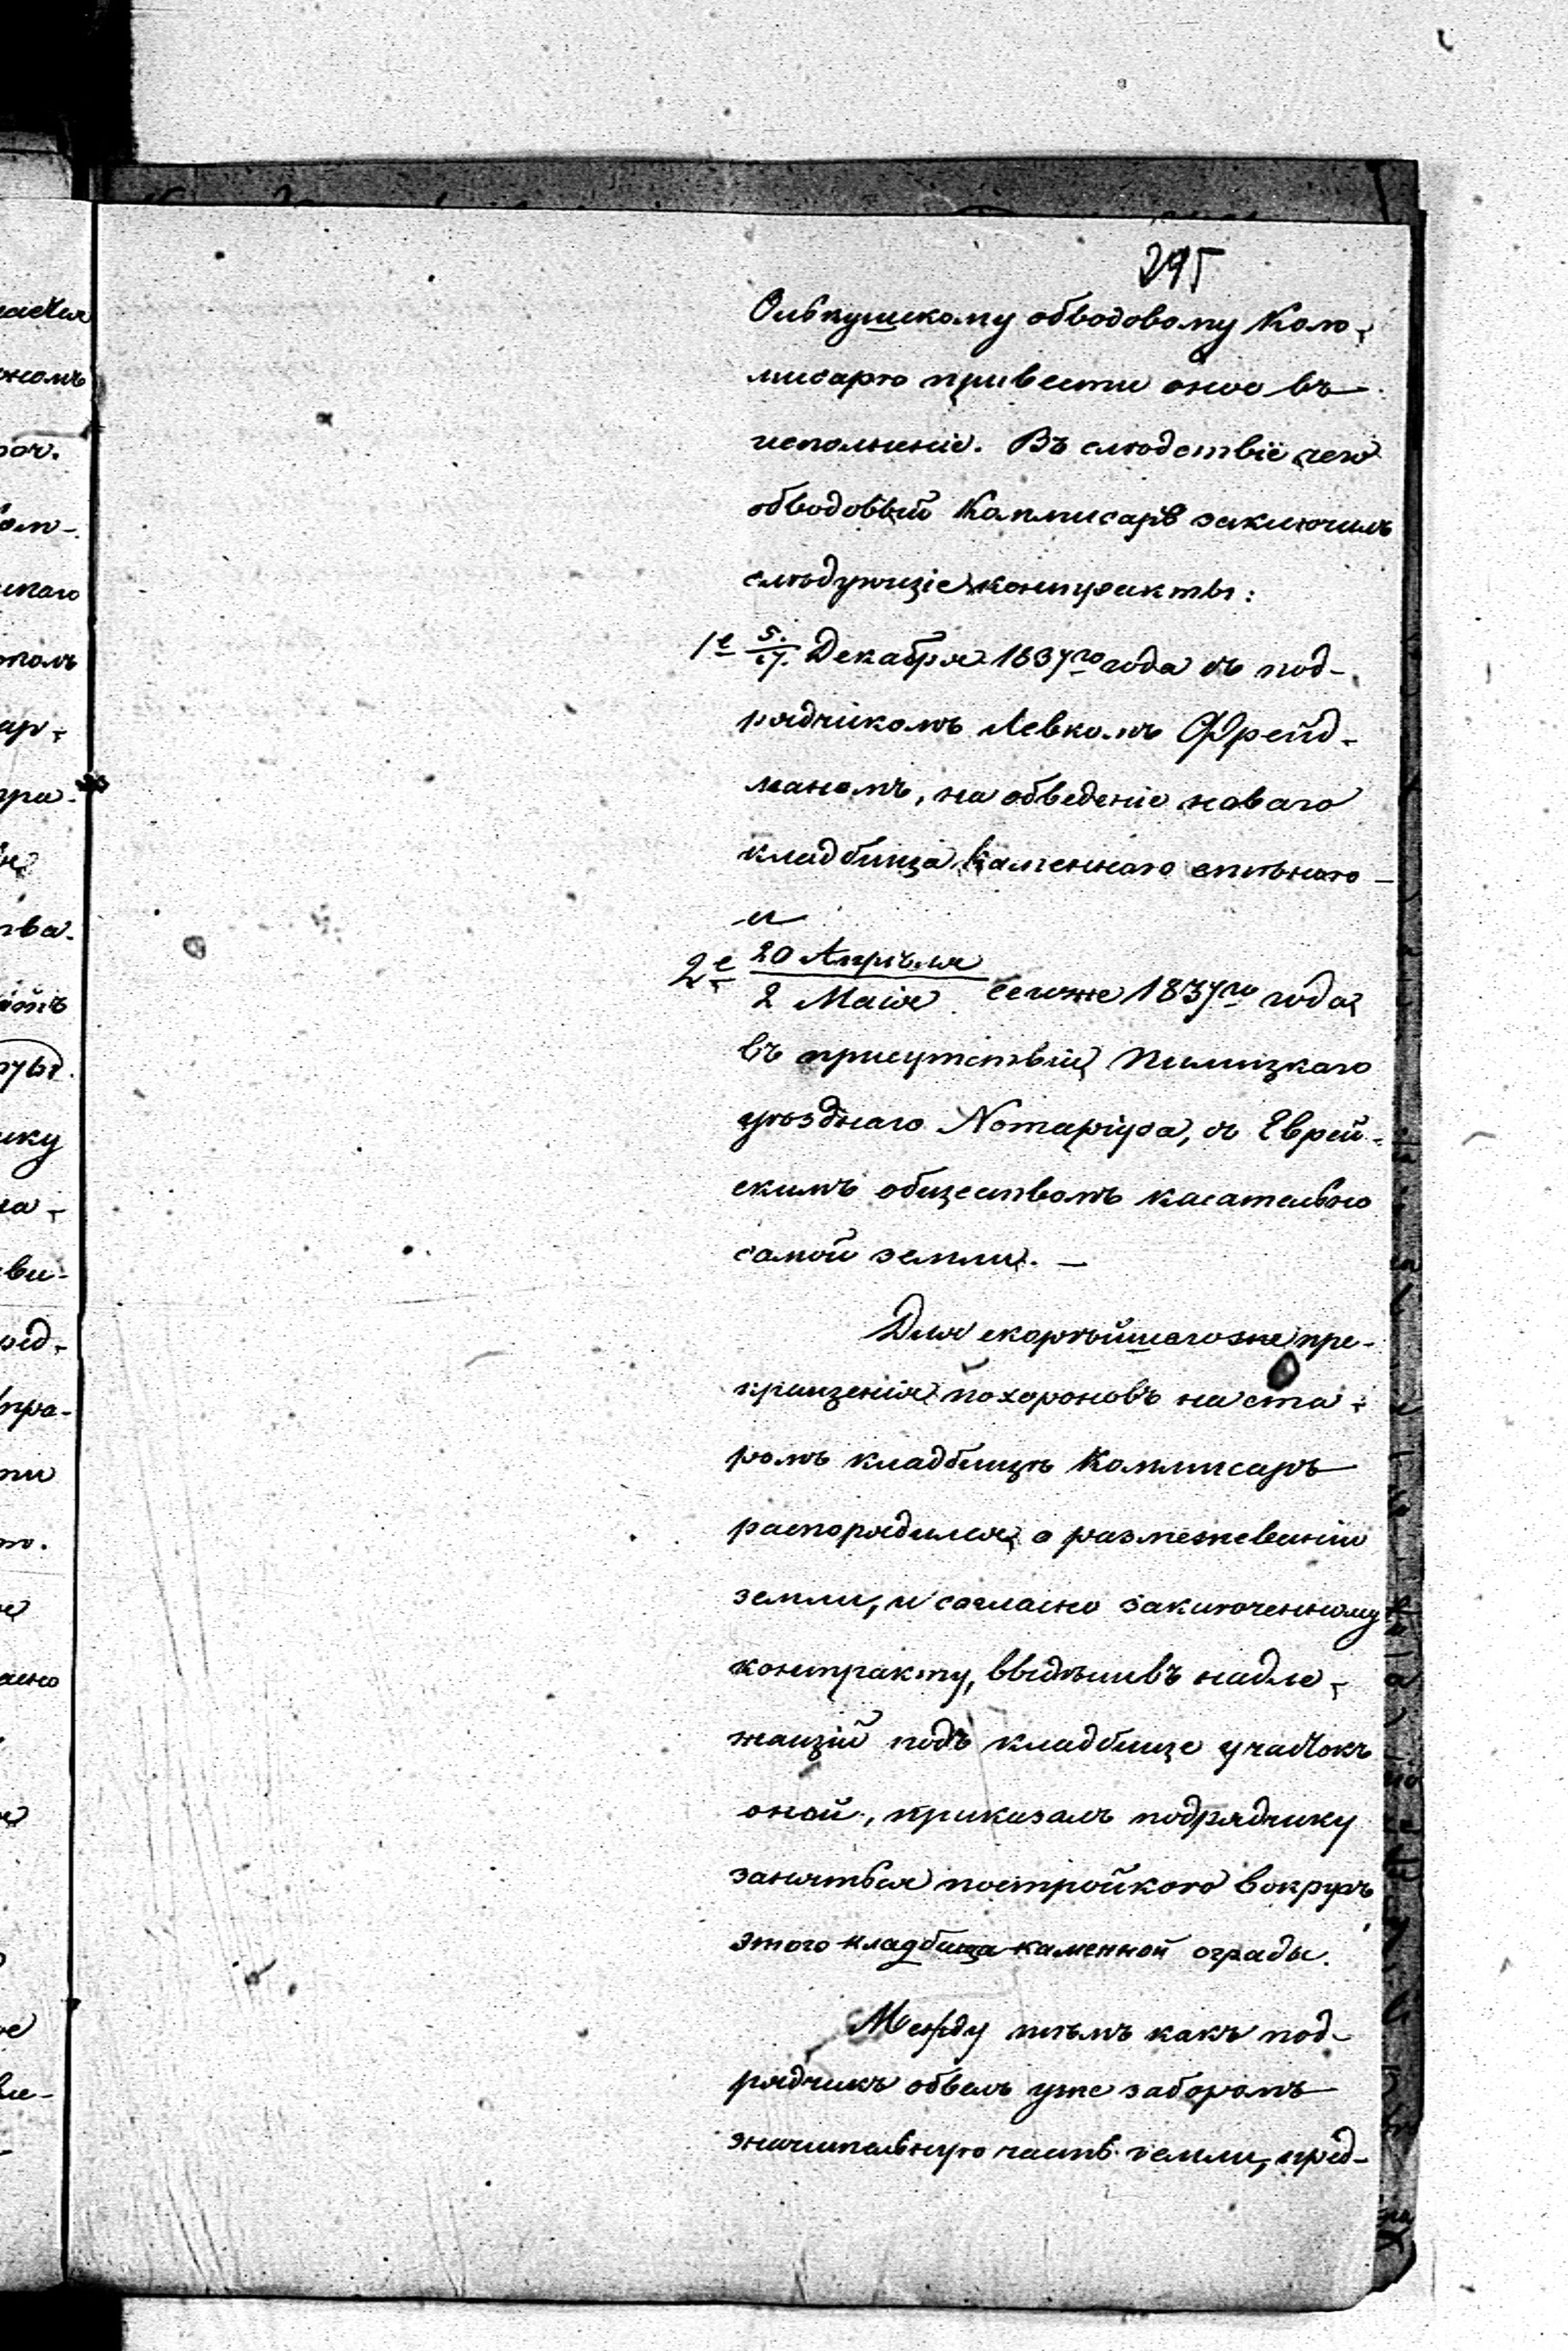 295
Олькушскому обводовому Ком-
мисарю привести оное въ
исполненіе. Въ слѣдствіе чего
обводовый Коммисаръ заключилъ
слѣдующіе контракты:
1е 5/17 Декабря 1837го года съ под-
рядчикомъ Левкомъ Фрейд-
маномъ, на обведеніе новаго
кладбища каменною стѣною
и
2е 20 Апрѣля / 2 Маія сегоже 1837го года
въ присутствіи Пилицкаго
уѣзднаго Nотаріуса, съ Еврей-
скимъ обществомъ касательно
самой земли. —
Для скорѣйшагоже пре-
кращенія похороновъ на ста-
ромъ кладбищѣ Коммисаръ
распорядился о размежеваніи
земли, и согласно заключенному
контракту, выдѣливъ надле-
жащій подъ кладбище участокъ
оной, приказалъ подрядчику
заняться постройкою вокругъ
этого кладбища каменной ограды.
Между тѣмъ какъ под-
рядчикъ обвелъ уже заборомъ
значительную часть земли, пред-